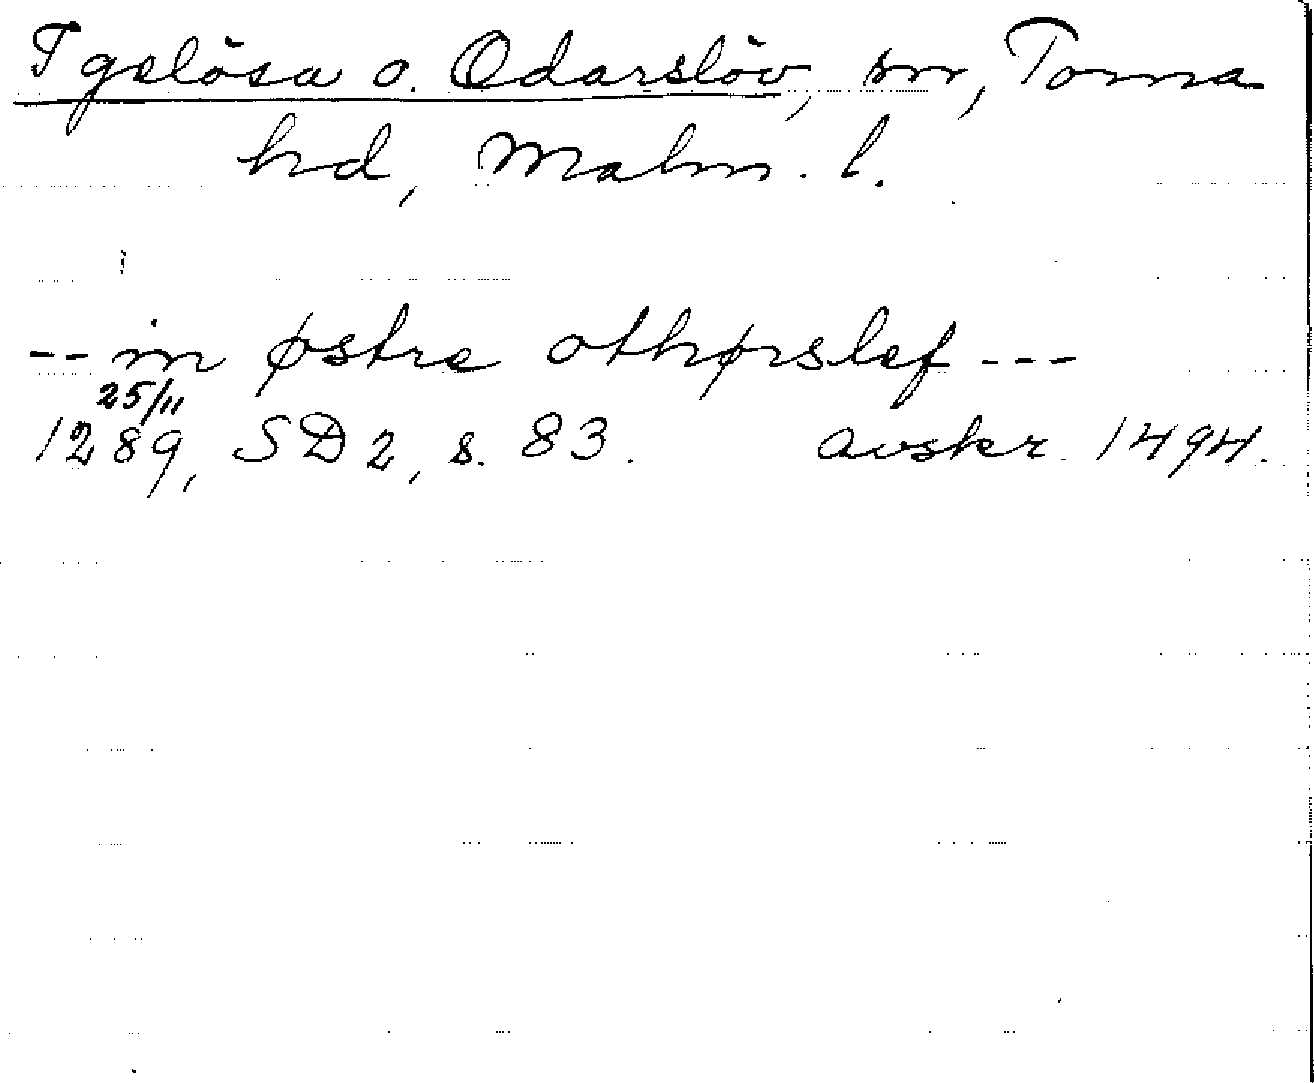 Igelösa o. Odarslöv, snr, Torna
hd, Malm. l.
-- in østre othørslef ---
25/11
1289, SD 2, s. 83. avskr. 1494.